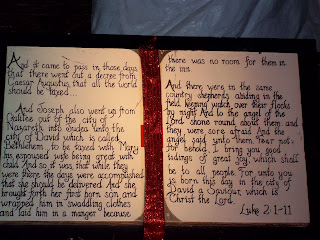 And it came to pass in those days
that there went out a decree from
Caesar Augustus that all the world
should be taxed...
And Joseph also went up from
Galilee out of the city of
Nazareth into Judea unto the
city of David which is called
Bethlehem, to be taxed with Mary
his espoused wife being great with
child And so it was that while they
were there the days were accomplished
that she should be delivered And she
brought forth her first born son and
wrapped him in swaddling clothes
and laid him in a manger because
there was no room for them in
the inn.
And there were in the same
country shepherds abiding in the
field keeping watch over their flocks
by night And lo the angel of the
Lord shone round about them and
they were sore afraid And the
angel said unto them, fear not:
for behold, I bring you good
tidings of great joy, which shall
be to all people For unto you
is born this day in the city of
David a Saviour which is
Christ the Lord.
Luke 2:1-11